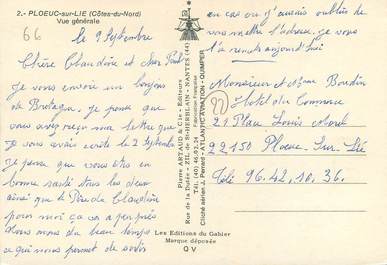 2.- PLOEUC-sur-LIE (Côtes-du-Nord)
Vue générale
66
le 9 Septembre
Chère Claudine et Jean Paul
je vous envoie un bonjour
de Bretagne. je pense que
vous avez reçu ma lettre que
je vous avais écrite le 2 Septembre
je pense que vous êtes en
bonne santé tous les deux
ainsi que le Père de Claudine
pour moi ça va à peu près
nous avons du beau temps
ce qui nous permet de sortir
Pierre ARTAUD & Cie - Editeurs
Rue de la - ZIL de St-HERBLAIN - NANTES (44)
Tél. (40) 46.92.24
Cliché aérien J. Perrard - ATLANTIC AVIATION - QUIMPER
Les Editions du Gabier
Marque déposée
QV
en cas où j'aurais oublié de
vous mettre l'adresse, je vous
la remets aujourd'hui
Monsieur et Mme Bourdin
Hotel du Commerce
22
29 Place Louis Morel
22150 Ploeuc-Sur-Lié
Tél: 96.42.10.36.